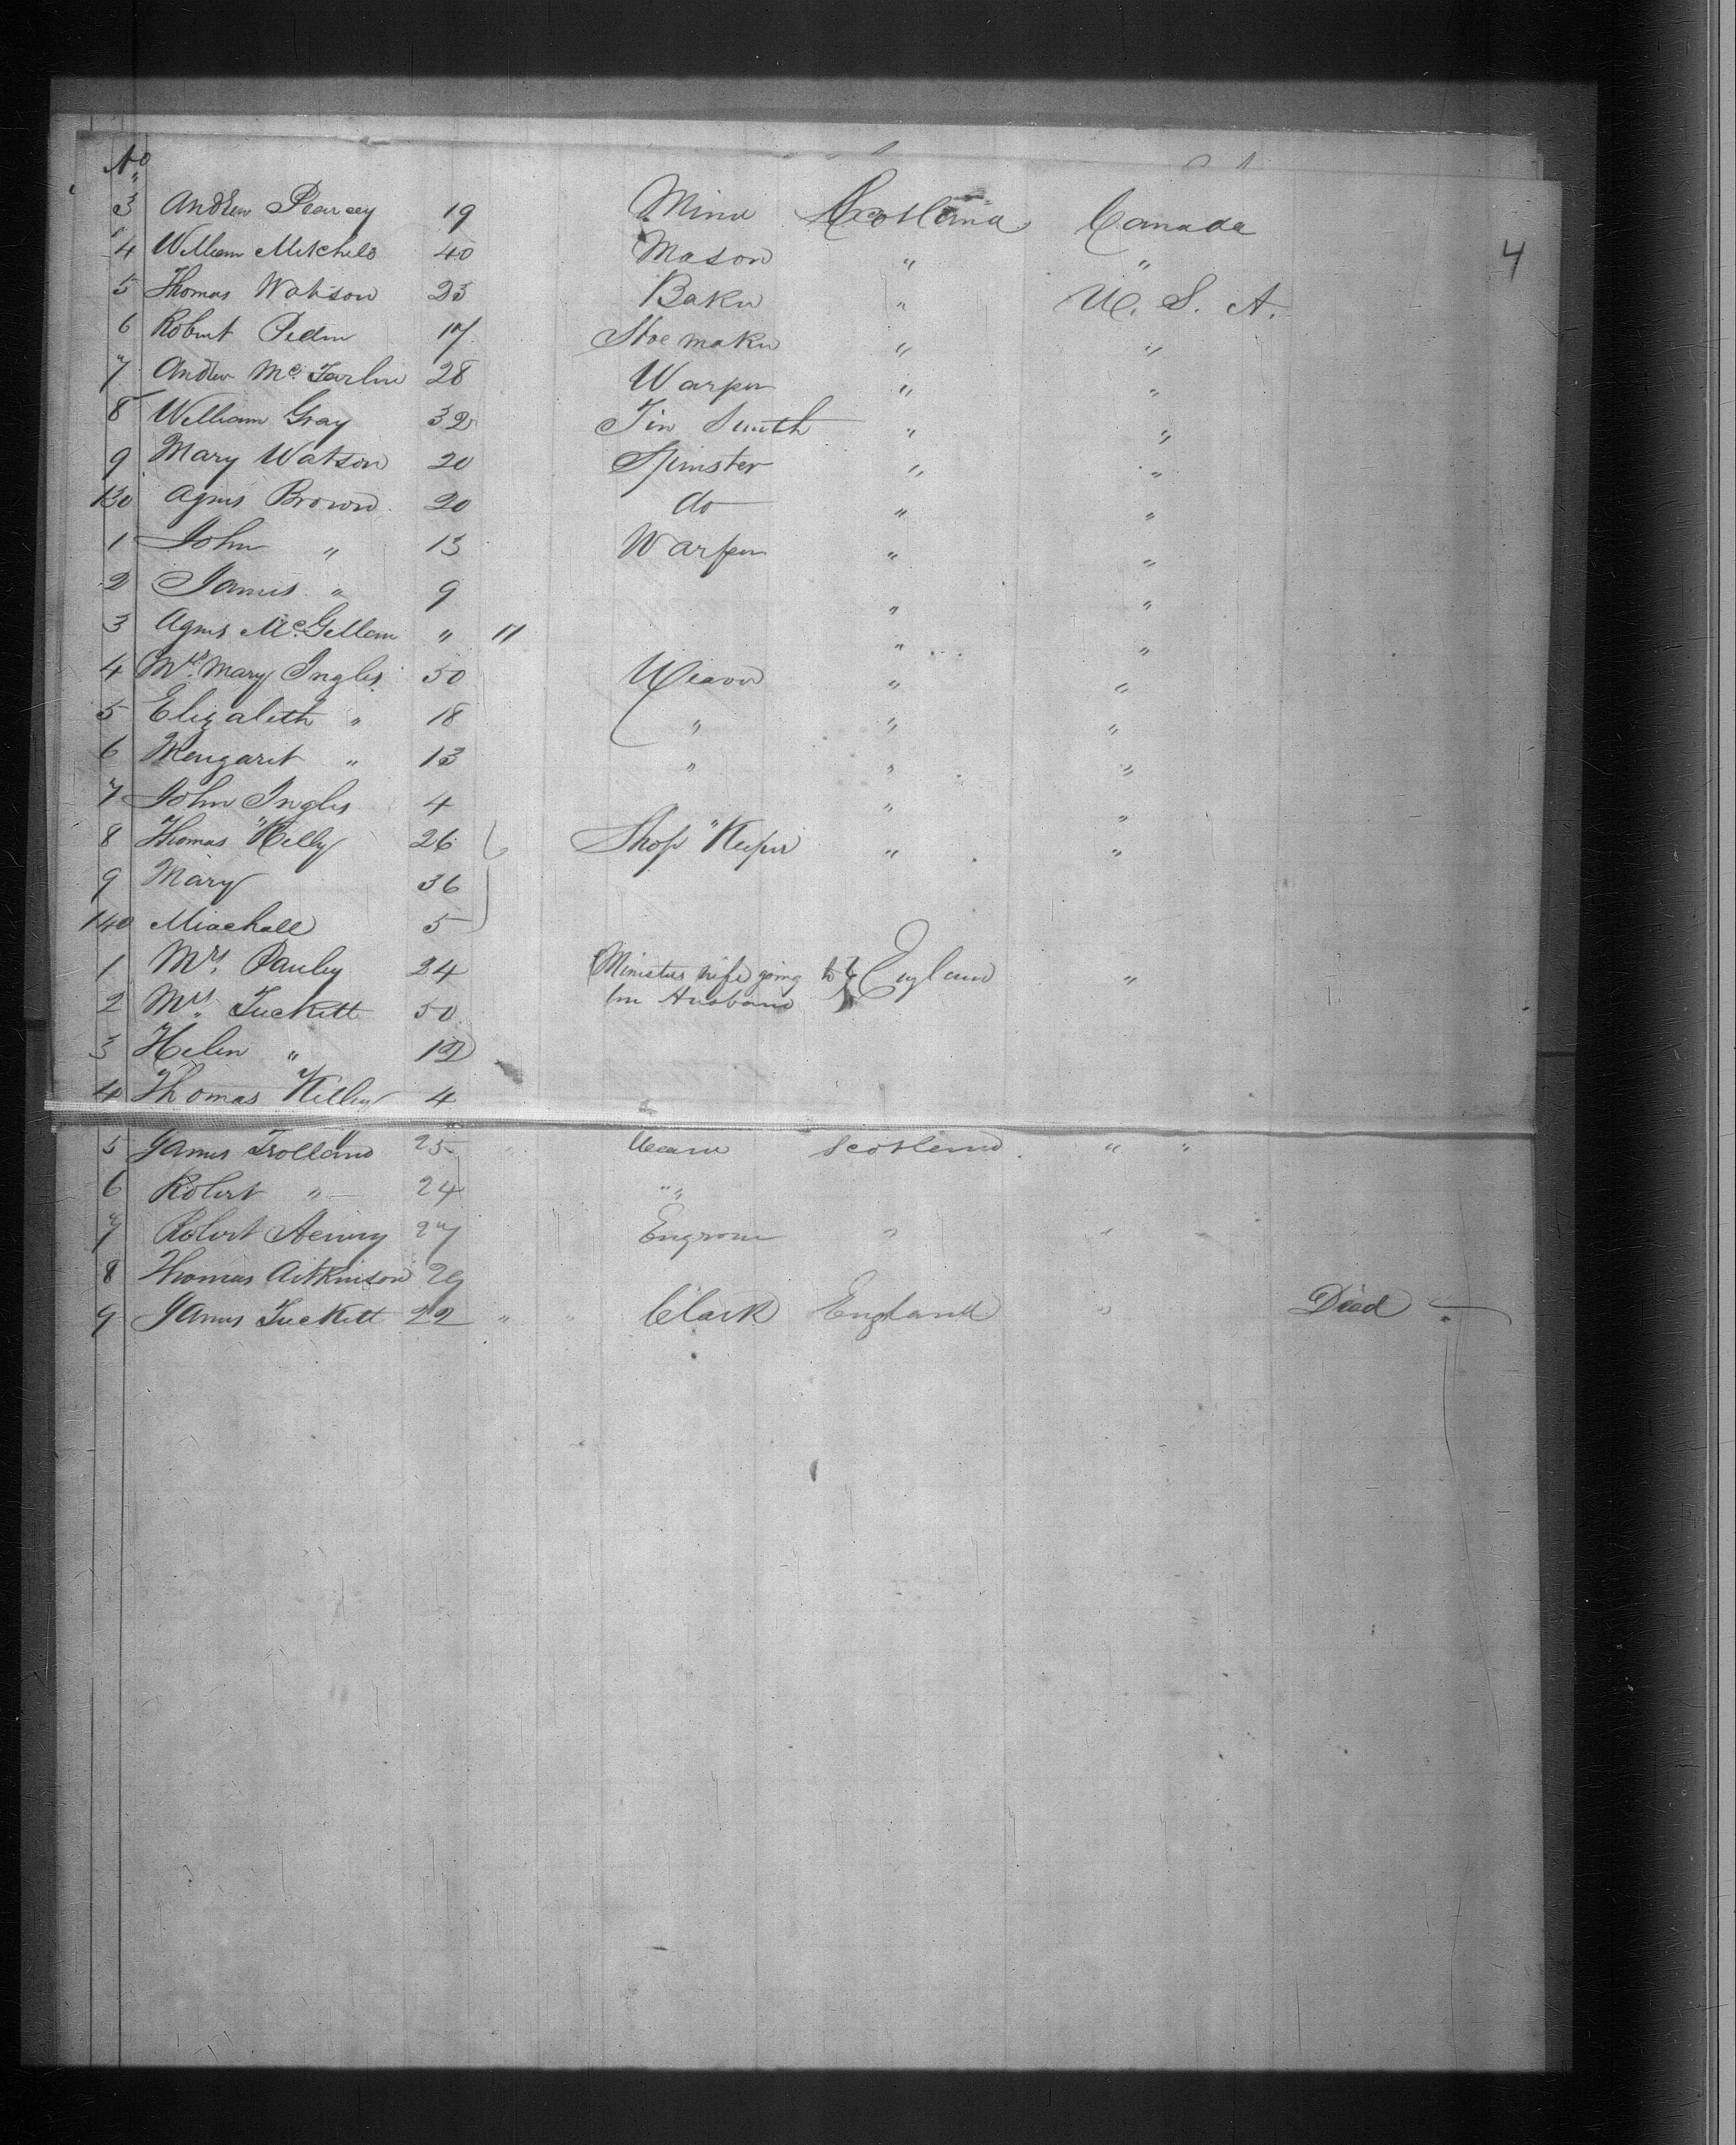 No
4
3 Andrew Pearcey 19 Miner Scotland Canada
4 William Mitchels 40 Mason " "
5 Thomas Watson 23 Baker " U. S. A.
6 Robert Peden 17 Shoe maker " "
7 Andrew Mc Farlin 28 Warper " "
8 William Gray 32 Tin Smith " "
9 Mary Watson 20 Spinster " "
130 Agnes Brown 20 do " "
1 John " 13 Warper " "
2 James " 9 " "
3 Agnes McGellan " 11 " "
4 Mrs Mary Inglis 50 Weaver " "
5 Elizabeth " 18 " " "
6 Mengaret " 13 " " "
7 John Inglis 4 " "
8 Thomas Kelly 26 Shop Keeper " "
9 Mary 36
140 Miachall 5
1 Mrs. Pauley 24 Ministers wife going to England "
her Husband
2 Mrs. Tuckett 50
3 Helen " 12
4 Thomas Kelley 4
5 James Trolland 25 " Scotland " "
6 Robert " 24 "
7 Robert Henry 27 " "
8 Thomas Aitkinson 29
9 James Tuckett 22 " " Clark England " Died